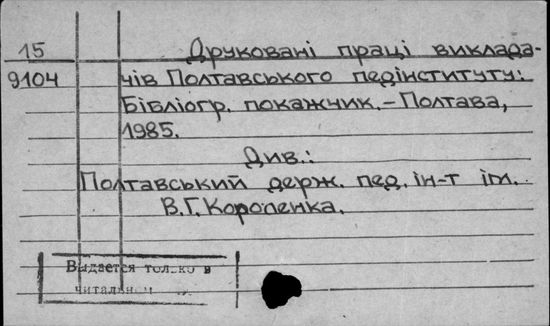 15
Друковані праці виклада-
9104
чів Полтавського педінституту:
Бібліогр. покажчик.-Полтава,
1985.
Див.:
Полтавський держ. пед. ін-т ім.
В.Г.Короленка.
Выдается только в
читальном